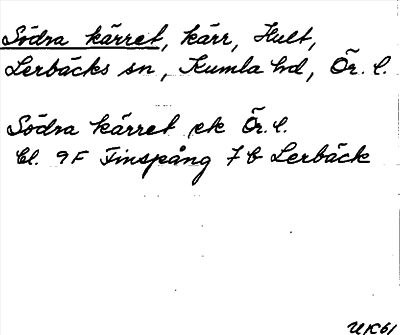 Södra kärret, kärr, Hult,
Lerbäcks sn, Kumla hd, Ör. l.
Södra kärret ek Ör. l.
Bl. 9F Finspång 7 b Lerbäck
UK61